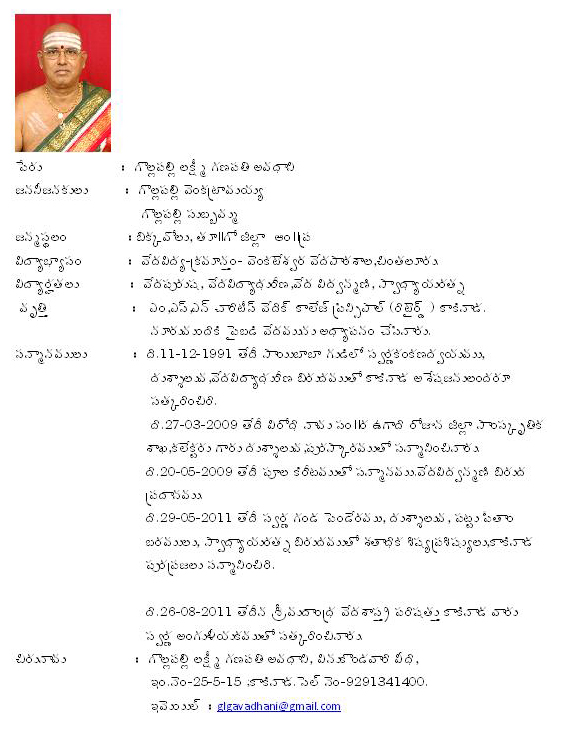 పేరు : గొల్లపల్లి లక్ష్మీ గణపతి అవధాని
జననీజనకులు : గొల్లపల్లి వెంకట్రామయ్య
గొల్లపల్లి సుబ్బమ్మ
జన్మస్థలం : బిక్కవోలు, తూ॥గో జిల్లా ఆం॥ప్ర
విద్యాభ్యాసం : వేదవిద్య-క్రమాన్తం- వెంకటేశ్వర వేదపాఠశాల,చింతలూరు.
విద్యార్హతలు : వేదపురుష, వేదవిద్యాధురీణ,వేద విద్వన్మణి, స్వాధ్యాయరత్న
వృత్తి : ఎం.ఎస్.ఎన్ చారిటీస్ వేదిక్ కాలేజ్ ప్రిన్సిపాల్ (రిటైర్డ్ ) కాకినాడ.
నూరుమందికి పైబడి వేదమును అధ్యాపనం చేసినారు.
సన్మానములు : ది.11-12-1991 తేదీ సాయిబాబా గుడిలో స్వర్ణకంకణద్వయము,
దుశ్శాలువ,వేదవిద్యాధురీణ బిరుదముతో కాకినాడ అశేషజనులందరూ
సత్కరించిరి.
ది.27-03-2009 తేదీ విరోధి నామ సం॥ర ఉగాది రోజున జిల్లా సాంస్కృతిక
శాఖ,కలెక్టరు గారు దుశ్శాలువ,పురస్కారముతో సన్మానించినారు.
ది.20-05-2009 తేదీ పూల కిరీటముతో సన్మానము.వేదవిద్వన్మణి బిరుద
ప్రదానము.
ది.29-05-2011 తేదీ స్వర్ణ గండ పెండేరము, దుశ్శాలువ, పట్టు పీతాం
బరములు, స్వాధ్యాయరత్న బిరుదముతో శతాధిక శిష్యప్రశిష్యులు,కాకినాడ
పురప్రజలు సన్మానించిరి.
ది.26-08-2011 తేదీన శ్రీమదాంధ్ర వేదశాస్త్ర పరిషత్తు కాకినాడ వారు
స్వర్ణ అంగుళీయకముతో సత్కరించినారు.
చిరునామ : గొల్లపల్లి లక్ష్మీ గణపతి అవధాని, వినుకొండవారి వీధి,
ఇం.నెం-25-5-15 ,కాకినాడ.సెల్ నెం-9291341400.
ఇమెయిల్ : glgavadhani@gmail.com